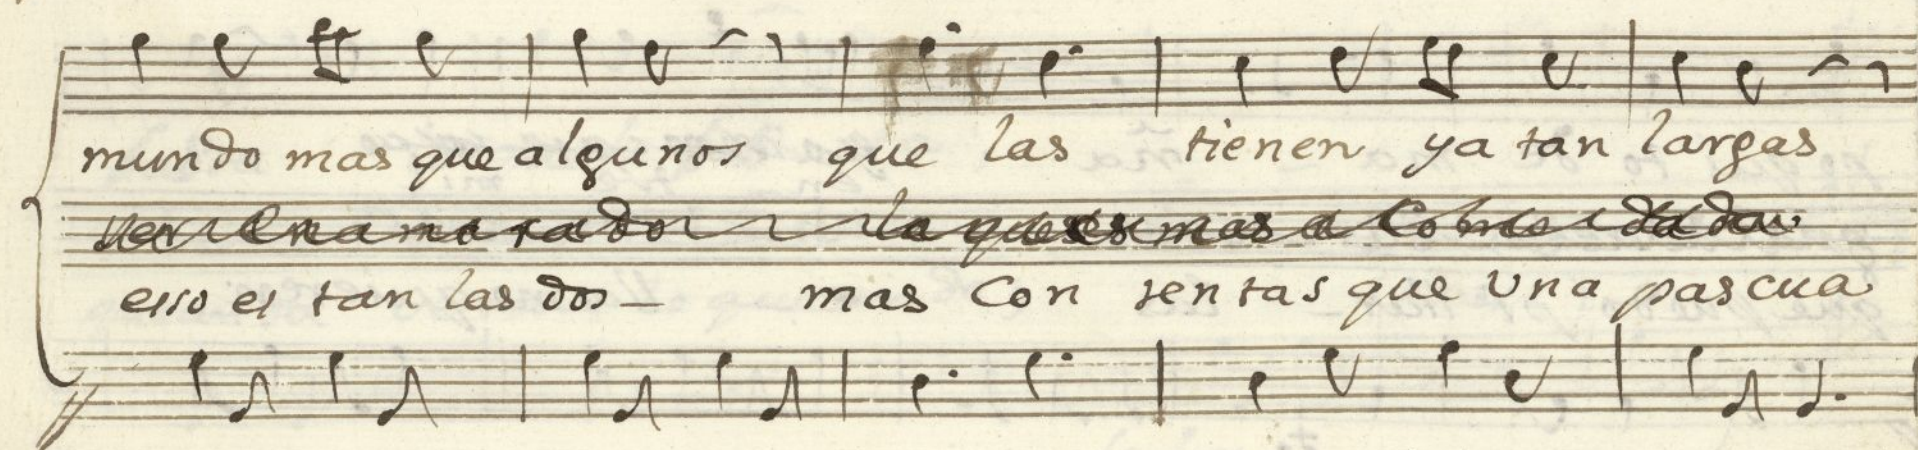 mundo mas que algunos que las tienen ya tan largas
enamorado lo que es mas a
esso es tan las dos mas Con tentas que una pascua